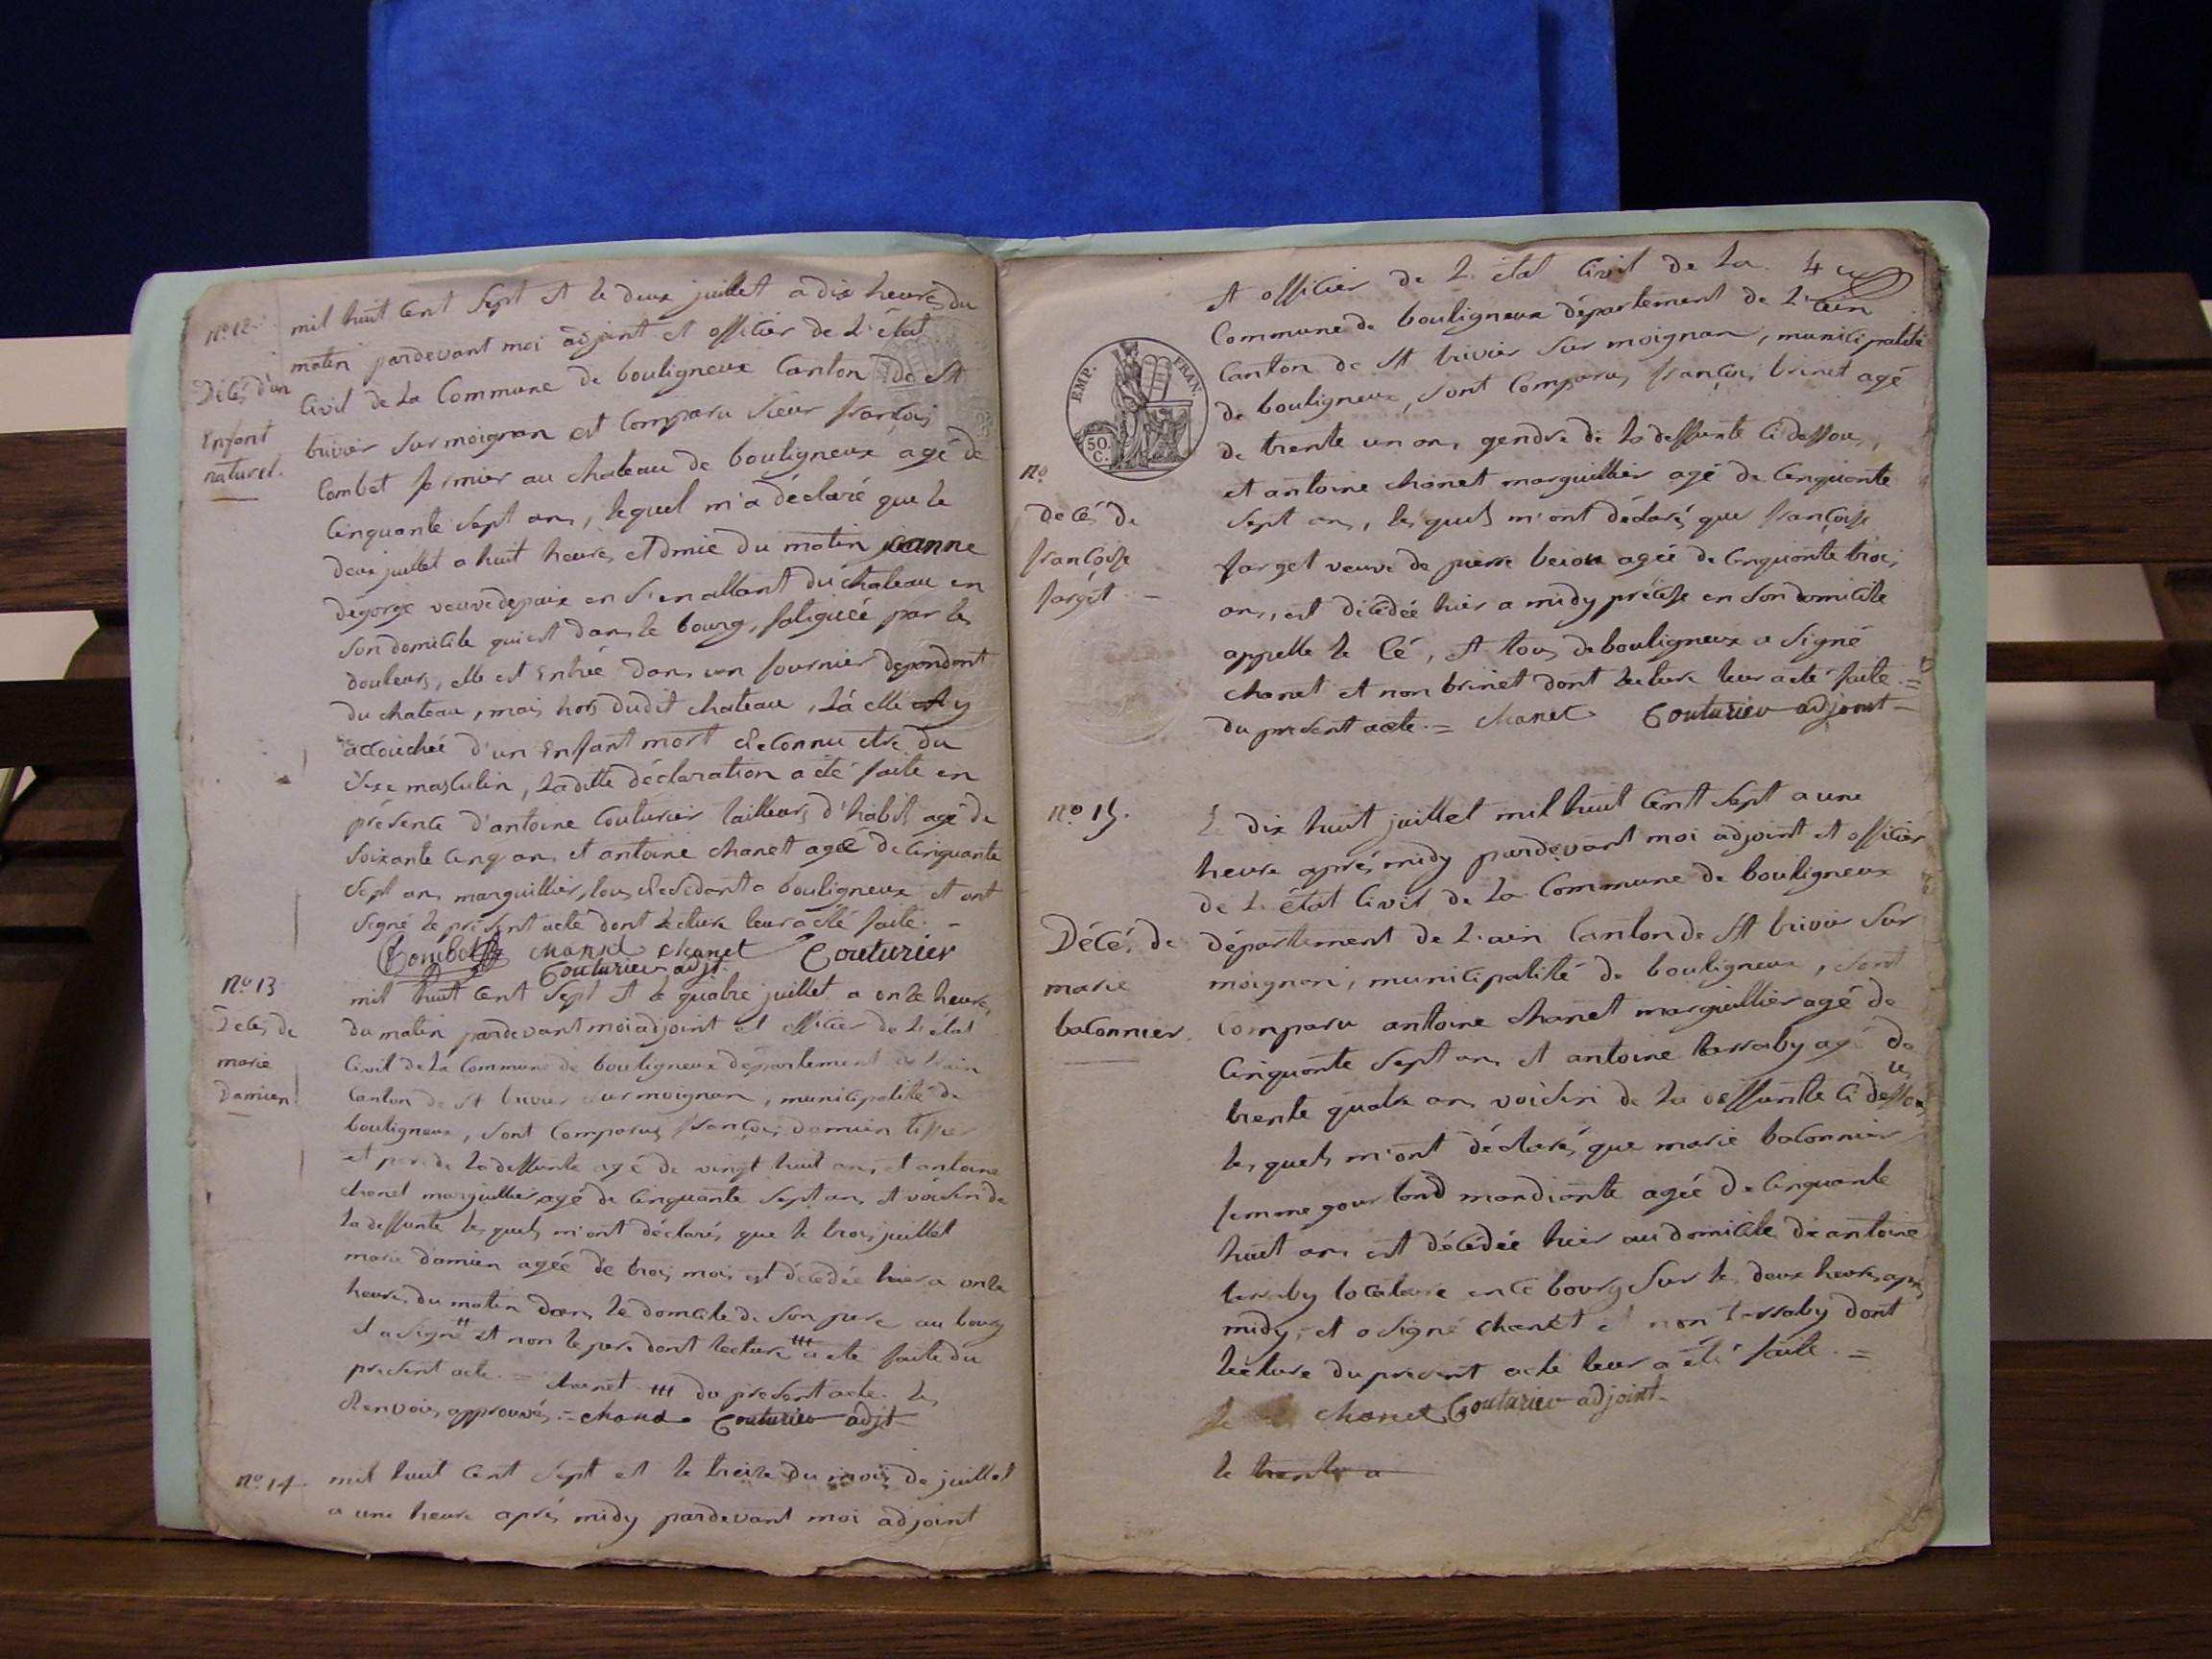 nº 12
Décés d'un
Enfant
naturel.
mil huit cent sept et le deux juillet a dix heures du
matin pardevant moi adjoint et officier de l'état
civil de la Commune de bouligneux Canton de St
trivier sur moignan est comparu sieur françois
Combet fermier au chateau de bouligneux agé de
cinquante sept ans, lequel m'a déclaré que le
deux juillet a huit heures et dmie du matin jeanne
degorge veuve depaix en s'en allant du chateau en
son domicile qui est dans le bourg, fatiguée par les
douleurs, elle est Entrée dans un fournier dependant
du chateau, mais hors dudit chateau, là elle y
accouchée d'un Enfant mort Reconnu etre du
sexe masculin, laditte déclaration a été faite en
présence d'antoine Couturier tailleurs d'habits agé de
soixante cinq ans et antoine chanet agé de cinquante
sept ans marguillier, tous Residant a bouligneux et ont
signé le présent acte dont lecture leur a été faite. -
Combet chanet Couturier
Couturier adjt
nº 13
Decés de
marie
Damien
mil huit cent sept et le quatre juillet a onze heures
du matin pardevant moi adjoint et officier de l'état
Civil de la Commune de bouligneux département de l'ain
Canton de St trivier sur moignan, municipalité de
bouligneux, sont Comparus françois damien
et pere de la deffunte agé de vingt huit ans et antoine
chanet marguillier agé de cinquante sept ans et voisin de
la deffunte lesquels m'ont déclarés que le trois juillet
marie damien agée de trois mois est décédée hier a onze
heures du matin dans le domicile de son pere au bourg
et a signé ++ et non le pere dont lecture +++ a été faite du
present acte. = chanet +++ du present acte. les
Renvois approuvés = chanet Couturier adjt
nº 14
mil huit cent sept et le treize du mois de juillet
a une heure aprés midy pardevant moi adjoint
4
et officier de l'état Civil de la
Commune de bouligneux département de l'ain
Canton de St trivier sur moignan, municipalité
de bouligneux, sont Comparus françois brinet agé
de trente un ans, gendre de la deffunte ci dessous,
et antoine chanet marguillier agé de cinquante
sept ans, lesquels m'ont déclarés que françoise
farget veuve de pierre agée de cinquante trois
ans, est décédée hier a midy précise en son domicile
appelle le Cé, et tous de bouligneux a signé
chanet et non brinet dont lecture leur a été faite =
du present acte. = chanet Couturier adjoint -
EMP. FRAN.
50 C.
nº
decés de
françoise
farget -
nº 15.
Décés de
marie
baconnier.
Le dix huit juillet mil huit cent sept a une
heure aprés midy pardevant moi adjoint et officier
de l'état Civil de la Commune de bouligneux
département de l'ain Canton de St trivier sur
moignan, municipalité de bouligneux, sont
Comparu antoine chanet marguillier agé de
Cinquante sept ans et antoine terraby agé de
trente quatre ans voisin de la deffunte ci dessous
lesquels m'ont déclarés que marie baconnier
femme gourtond mandiante agée de cinquante
huit ans est décédée hier au domicile de antoine
terraby locataire en ce bourg sur les deux heures aprés
midy, et a signé chanet et non terraby dont
lecture du present acte leur a été faite. =
le chanet Couturier adjoint -
le trente a